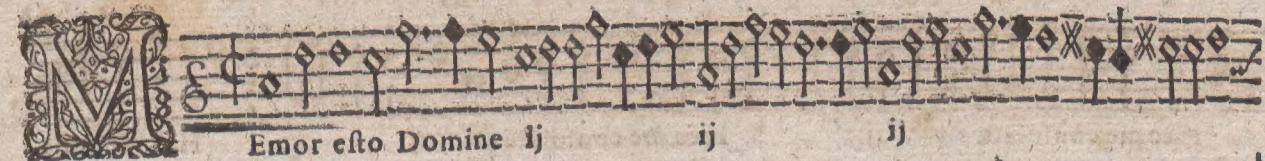 MEmor eſto Domine ij ij ij